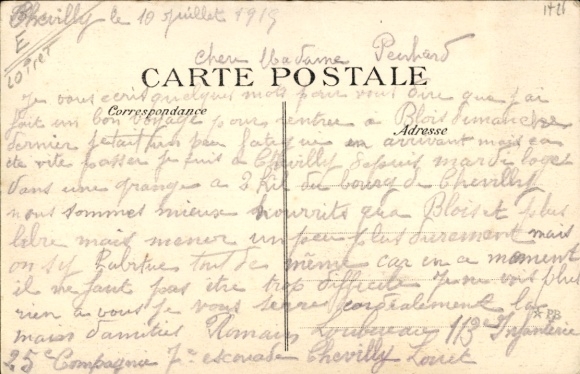 1426
Chevilly le 10 juillet 1915
Loiret
chere Madame Penhard
CARTE POSTALE
Je vous ecris quelques mots pour vous dire que j'ai
Correspondance
fait un bon voyage pour rentrée a Blois dimanche
Adresse
dernier jetait un peu fatigue en arrivant mais ca
de vite passer je suis a Chevilly depuis mardi loge
dans une grange a 2 kil du bourg de Chevilly
nous sommes mieux nourrits qua Blois et plus
libre mais mener un peu plus durement mais
on sy habitue tout de même car en ce moment
il ne faut pas être trop difficile Je ne vois plus
rien a vous je vous serre cordealement la
main d'amities Romain 113e Infanterie
PB
25e Compagnie 7e escouade Chevilly Loiret